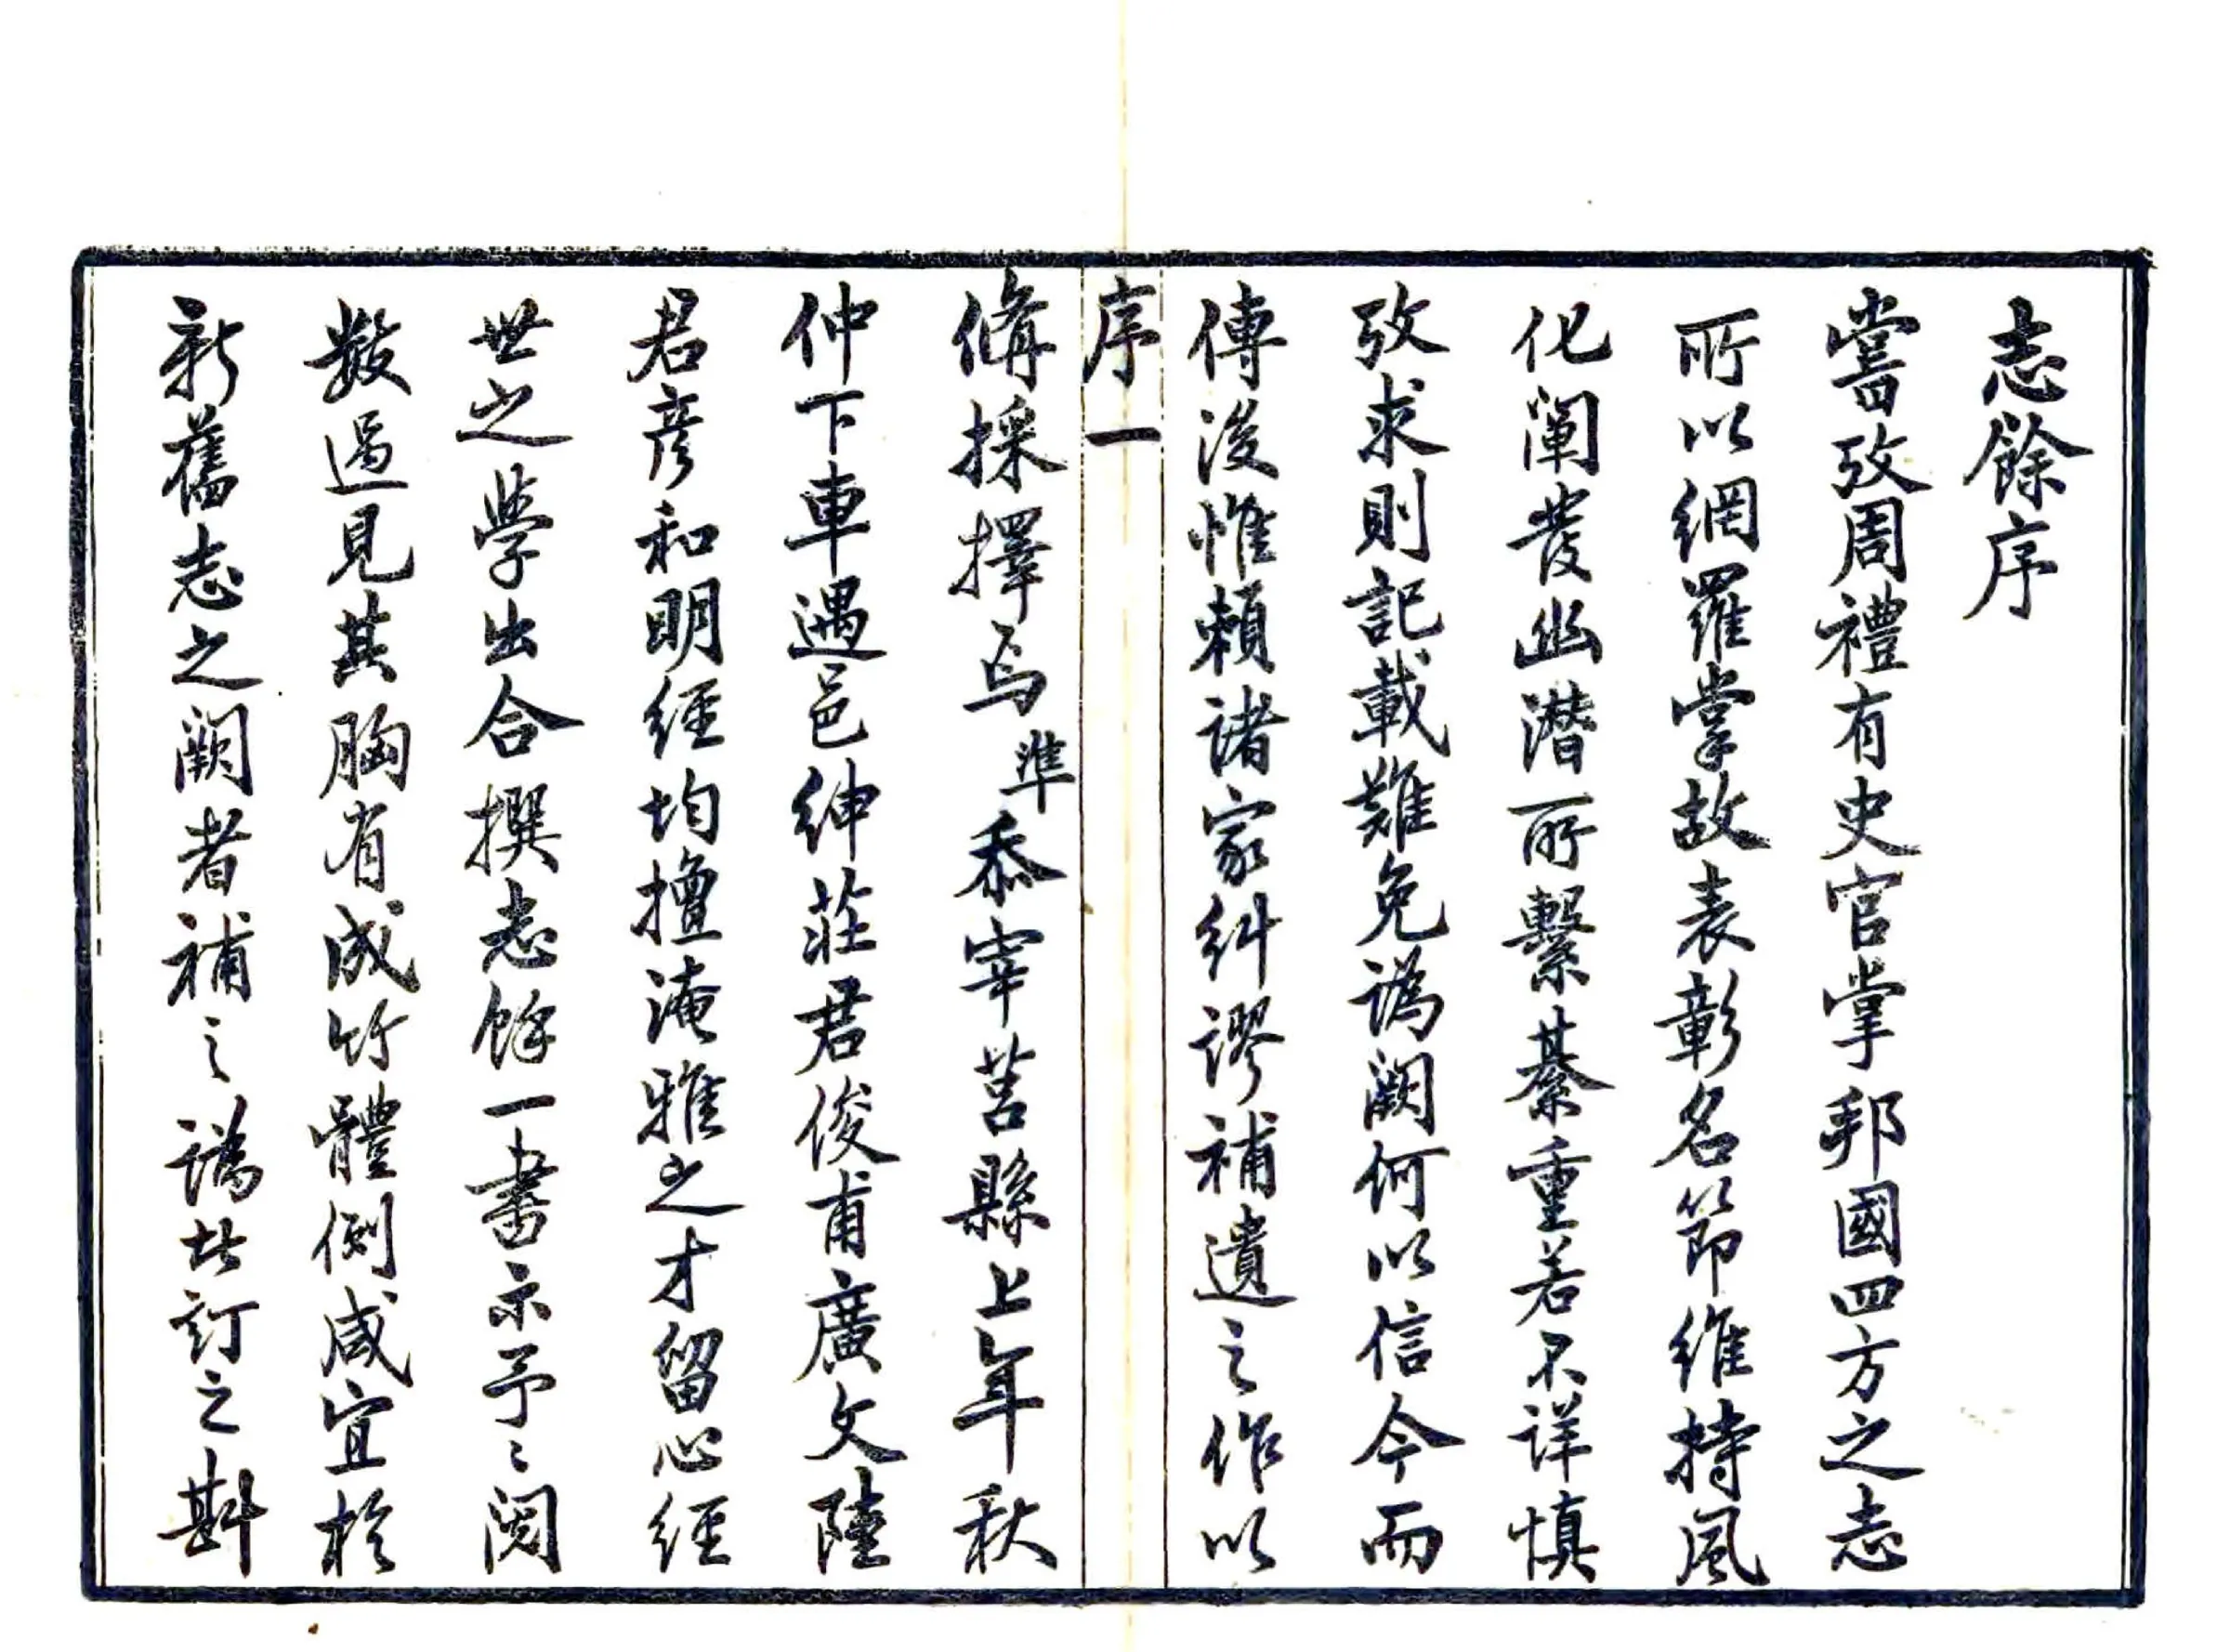 志餘序
嘗攷周禮有史官掌邦國四方之志
所以網羅掌故表彰名節維持風
化闡發幽潛所繫綦重若不詳慎
攷求則記載難免譌闕何以信今而
傳後惟賴諸家糾謬補遺之作以
序一
備採擇焉準忝宰莒縣上年秋
仲下車遇邑紳莊君俊甫廣文陸
君彥和明經均擅淹雅之才留心經
世之學出合撰志餘一書示予〻閱
數過見其胸有成竹體例咸宜於
新舊志之闕者補之譌者訂之斟